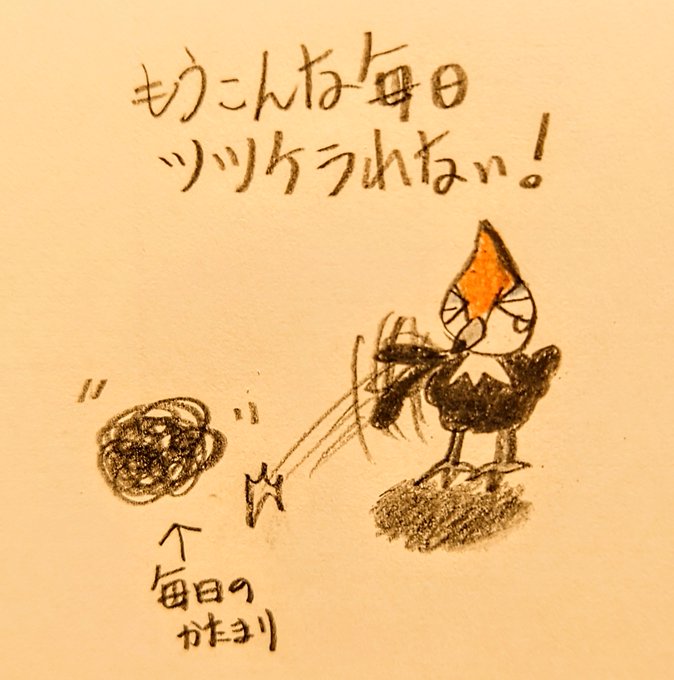 もうこんな毎日
ツツケラれない!
毎日の
かたまり